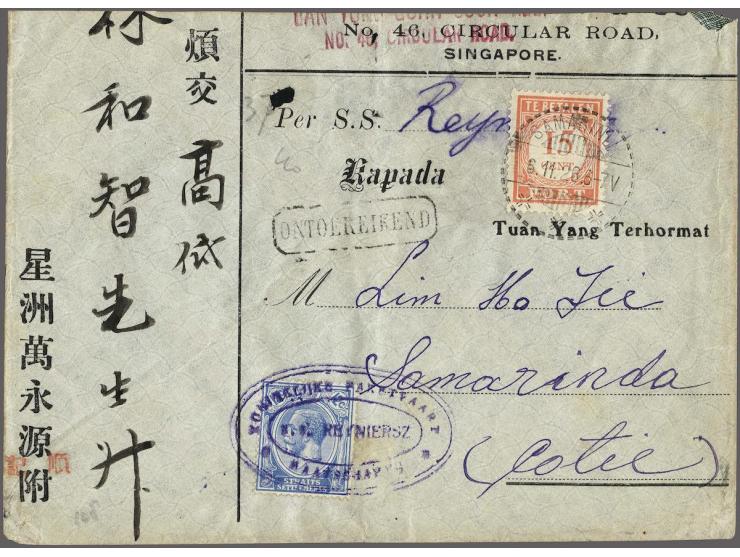 No, 46, CIRCULAR ROAD,
No. 46, CIRCULAR ROAD.
SINGAPORE.
Per S.S.
TE BETALEN
15
CENT
PORT
SAMARINDA
6.11.23.6-7V
Kapada
ONTOEREIKEND
Tuan Yang Terhormat
M Lim Ho Tie
Samarinda
(Cotie)
KONINKLIJKE PAKETVAART
REYNIERSZ
MAATSCHAPPIJ
STRAITS
SETTLEMENTS
煩交 高低
林和智先生升
星洲萬永源附